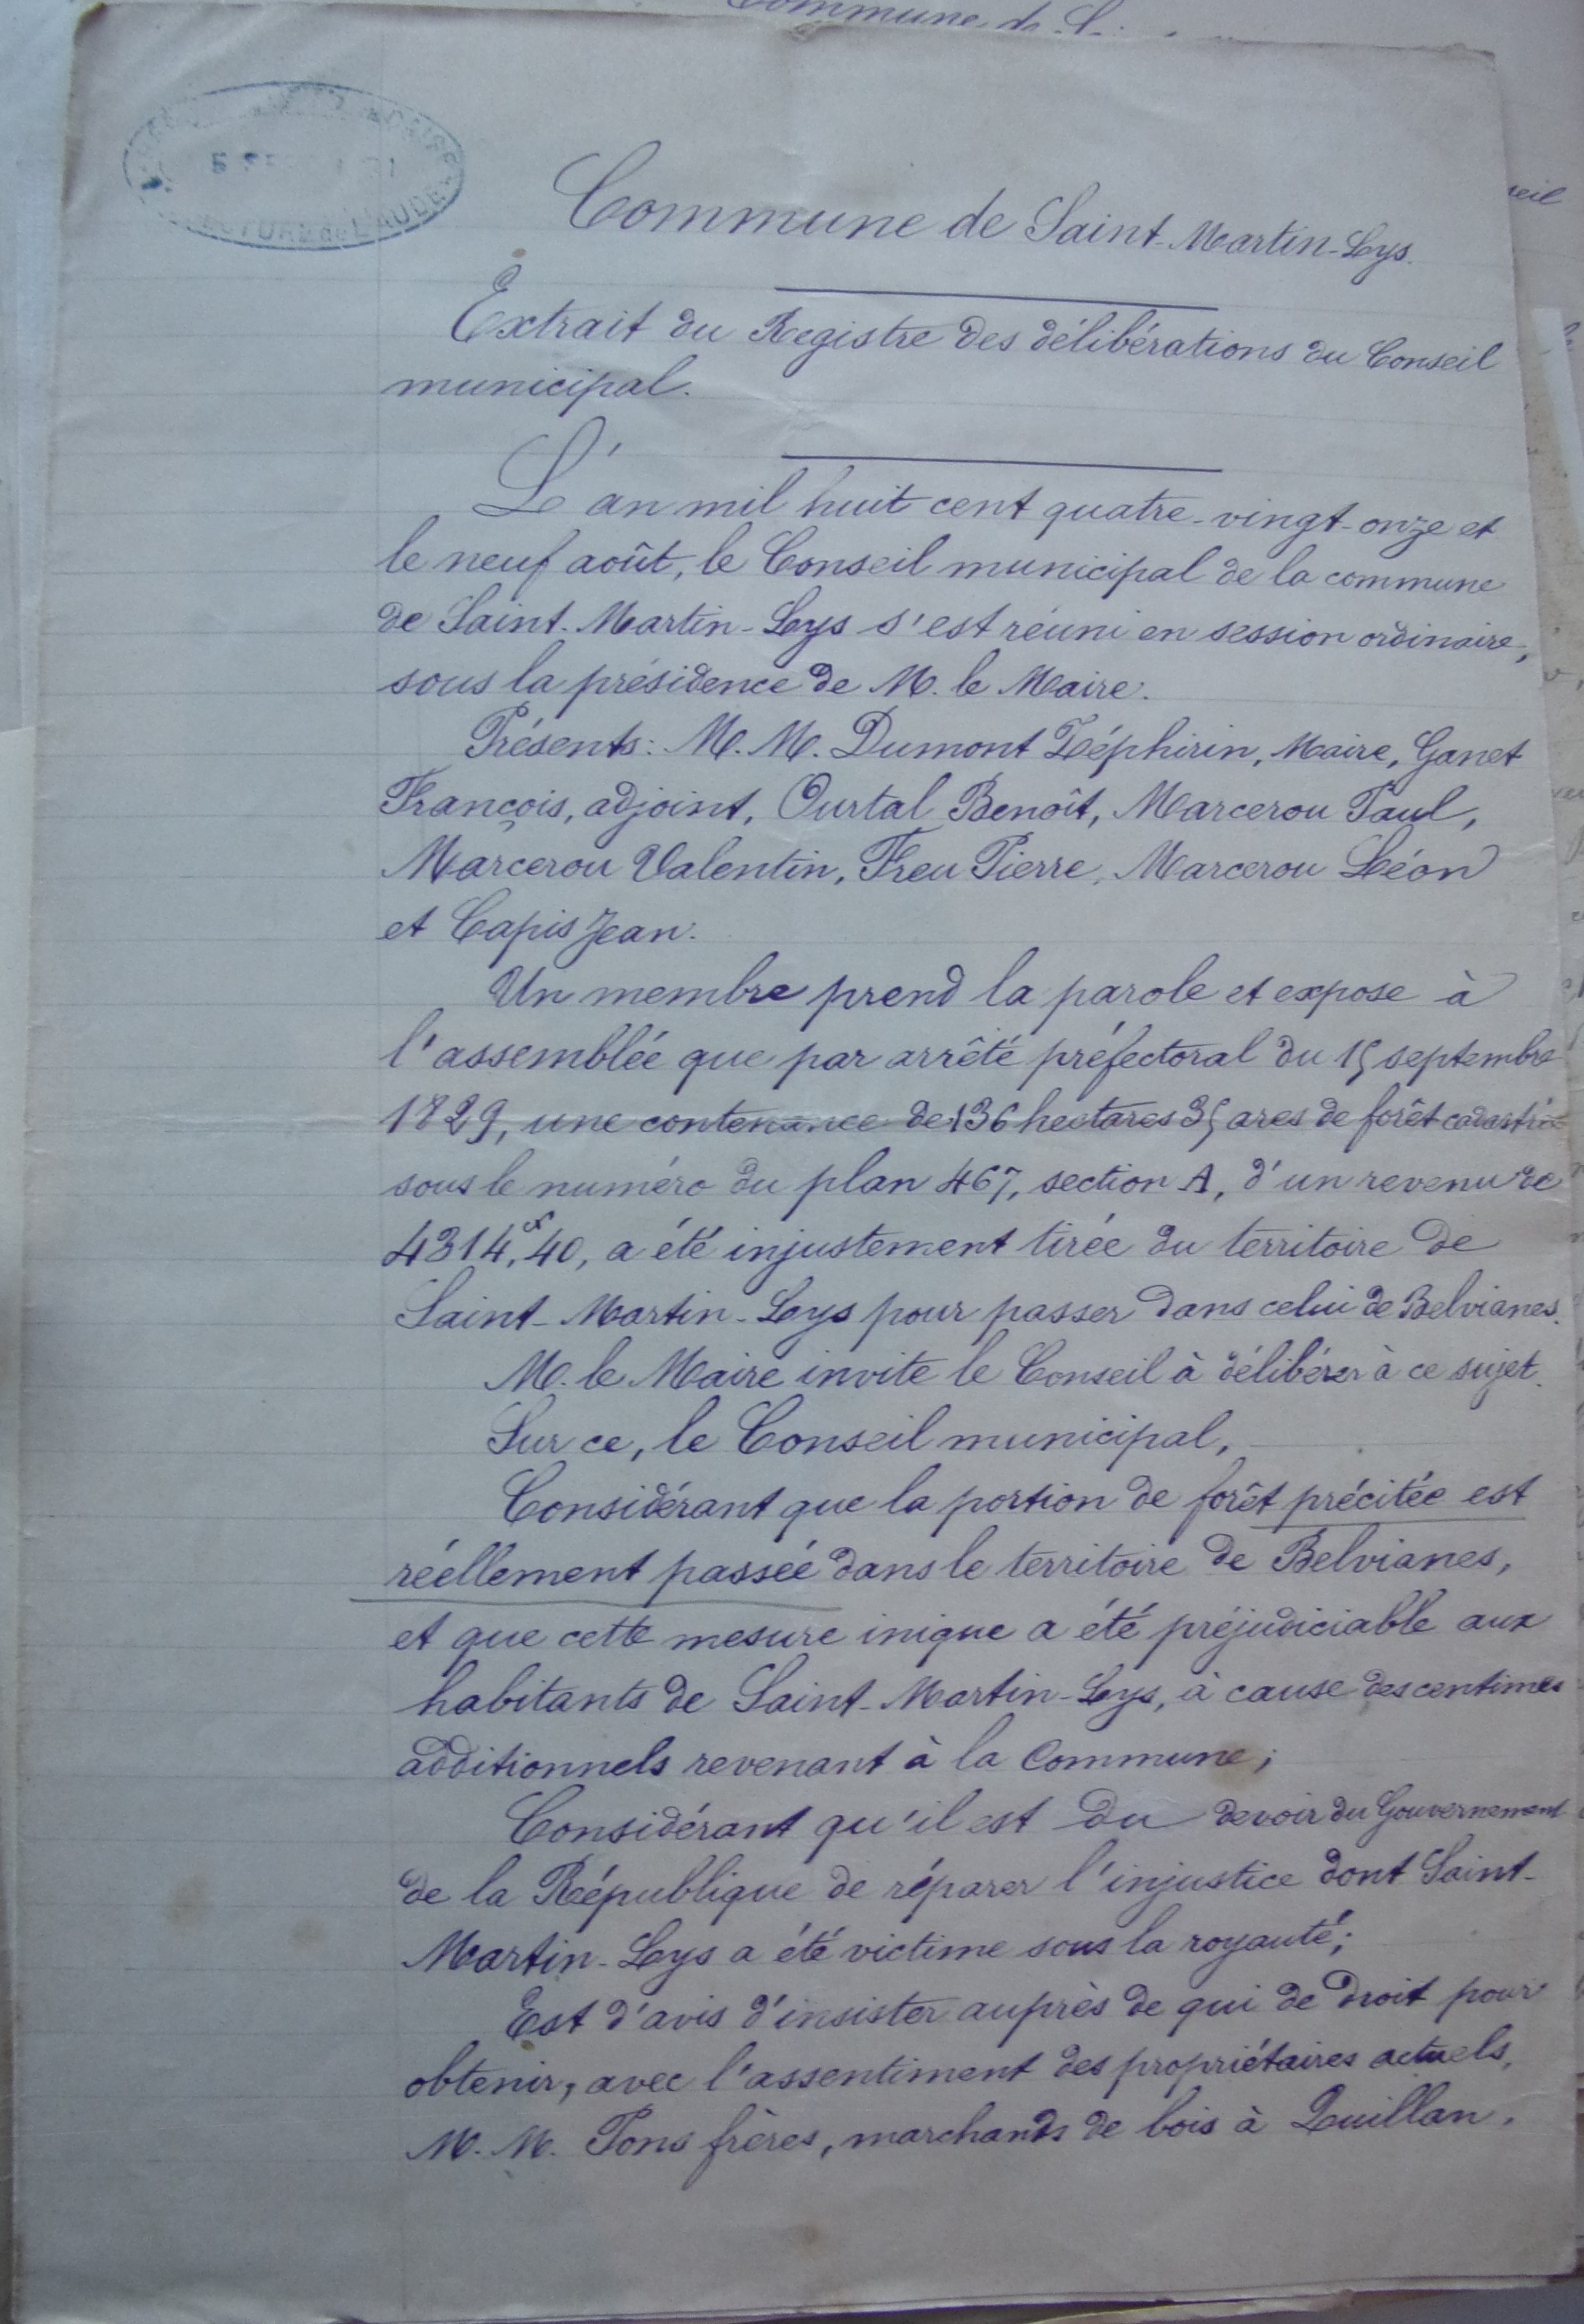 Commune de
eil
PRÉFECTURE de L'AUDE
Commune de Saint-Martin-Lys.
Extrait du Registre des délibérations du Conseil
municipal.
L'an mil huit cent quatre-vingt-onze et
le neuf août, le Conseil municipal de la commune
de Saint-Martin-Lys s'est réuni en session ordinaire,
sous la présidence de M. le Maire.
Présents: M. M. Dumont Zéphirin, Maire, Ganet
François, adjoint, Ourtal Benoît, Marcerou Paul,
Marcerou Valentin, Freu Pierre, Marcerou Léon
et Capis Jean.
Un membre prend la parole et expose à
l'assemblée que par arrêté préfectoral du 15 septembre
1829, une contenance de 136 hectares 35 ares de forêt cadastrée
sous le numéro du plan 467, section A, d'un revenu de
4314, 40, a été injustement tirée du territoire de
Saint-Martin-Lys pour passer dans celui de Belvianes.
M. le Maire invite le Conseil à délibérer à ce sujet.
Sur ce, le Conseil municipal,
Considérant que la portion de forêt précitée est
réellement passée dans le territoire de Belvianes,
et que cette mesure inique a été préjudiciable aux
habitants de Saint-Martin-Lys, à cause des centimes
additionnels revenant à la Commune;
Considérant qu'il est du devoir du Gouvernement
de la République de réparer l'injustice dont Saint-
Martin-Lys a été victime sous la royauté;
Est d'avis d'insister auprès de qui de droit pour
obtenir, avec l'assentiment des propriétaires actuels,
M. M. Pons frères, marchands de bois à Quillan,